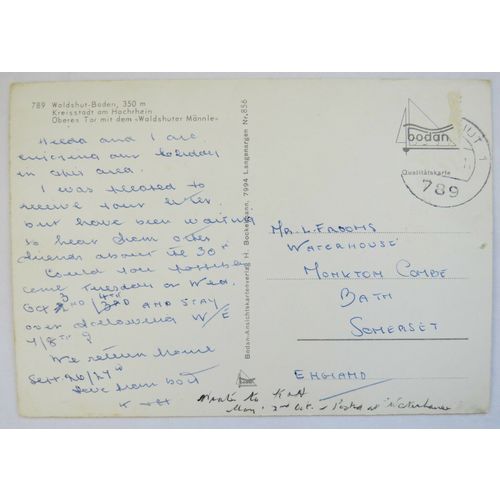 789 Waldshut-Baden, 350 m
Kreisstadt am Hochrhein
Oberes Tor mit dem »Waldshuter Männle«
Heida and I are
enjoying our holiday
in this area.
I was pleased to
receive your letter
but have been waiting
to hear from other
friends about the 30th
Could you possibly
come Tuesday or Wed.
Oct 3RD / 4TH AND STAY
over following W/E
7/8th ?
We return home
Sept 26/27th
Love from both
K + H
Bodan-Ansichtskartenverlag H. Bockelmann, 7994 Langenargen Nr. 856
bodan
Qualitätskarte
HUT 1
789
MR. L. FROOMS
WATERHOUSE
MONKTOM COMBE
BATH
SOMERSET
ENGLAND
Wrote to K + H
Mon. 2nd Oct. - Posted at Waterhouse